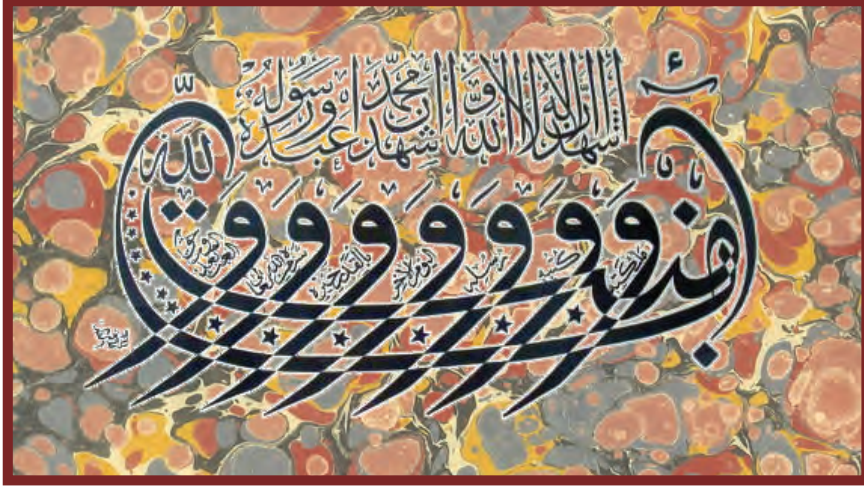 اشهد ان لا اله الا الله و اشهد ان محمدا عبده و رسوله
آمنت بالله و ملائكته و كتبه و رسله و اليوم الاخر و بالقدر خيره و شره من الله تعالى و البعث بعد الموت